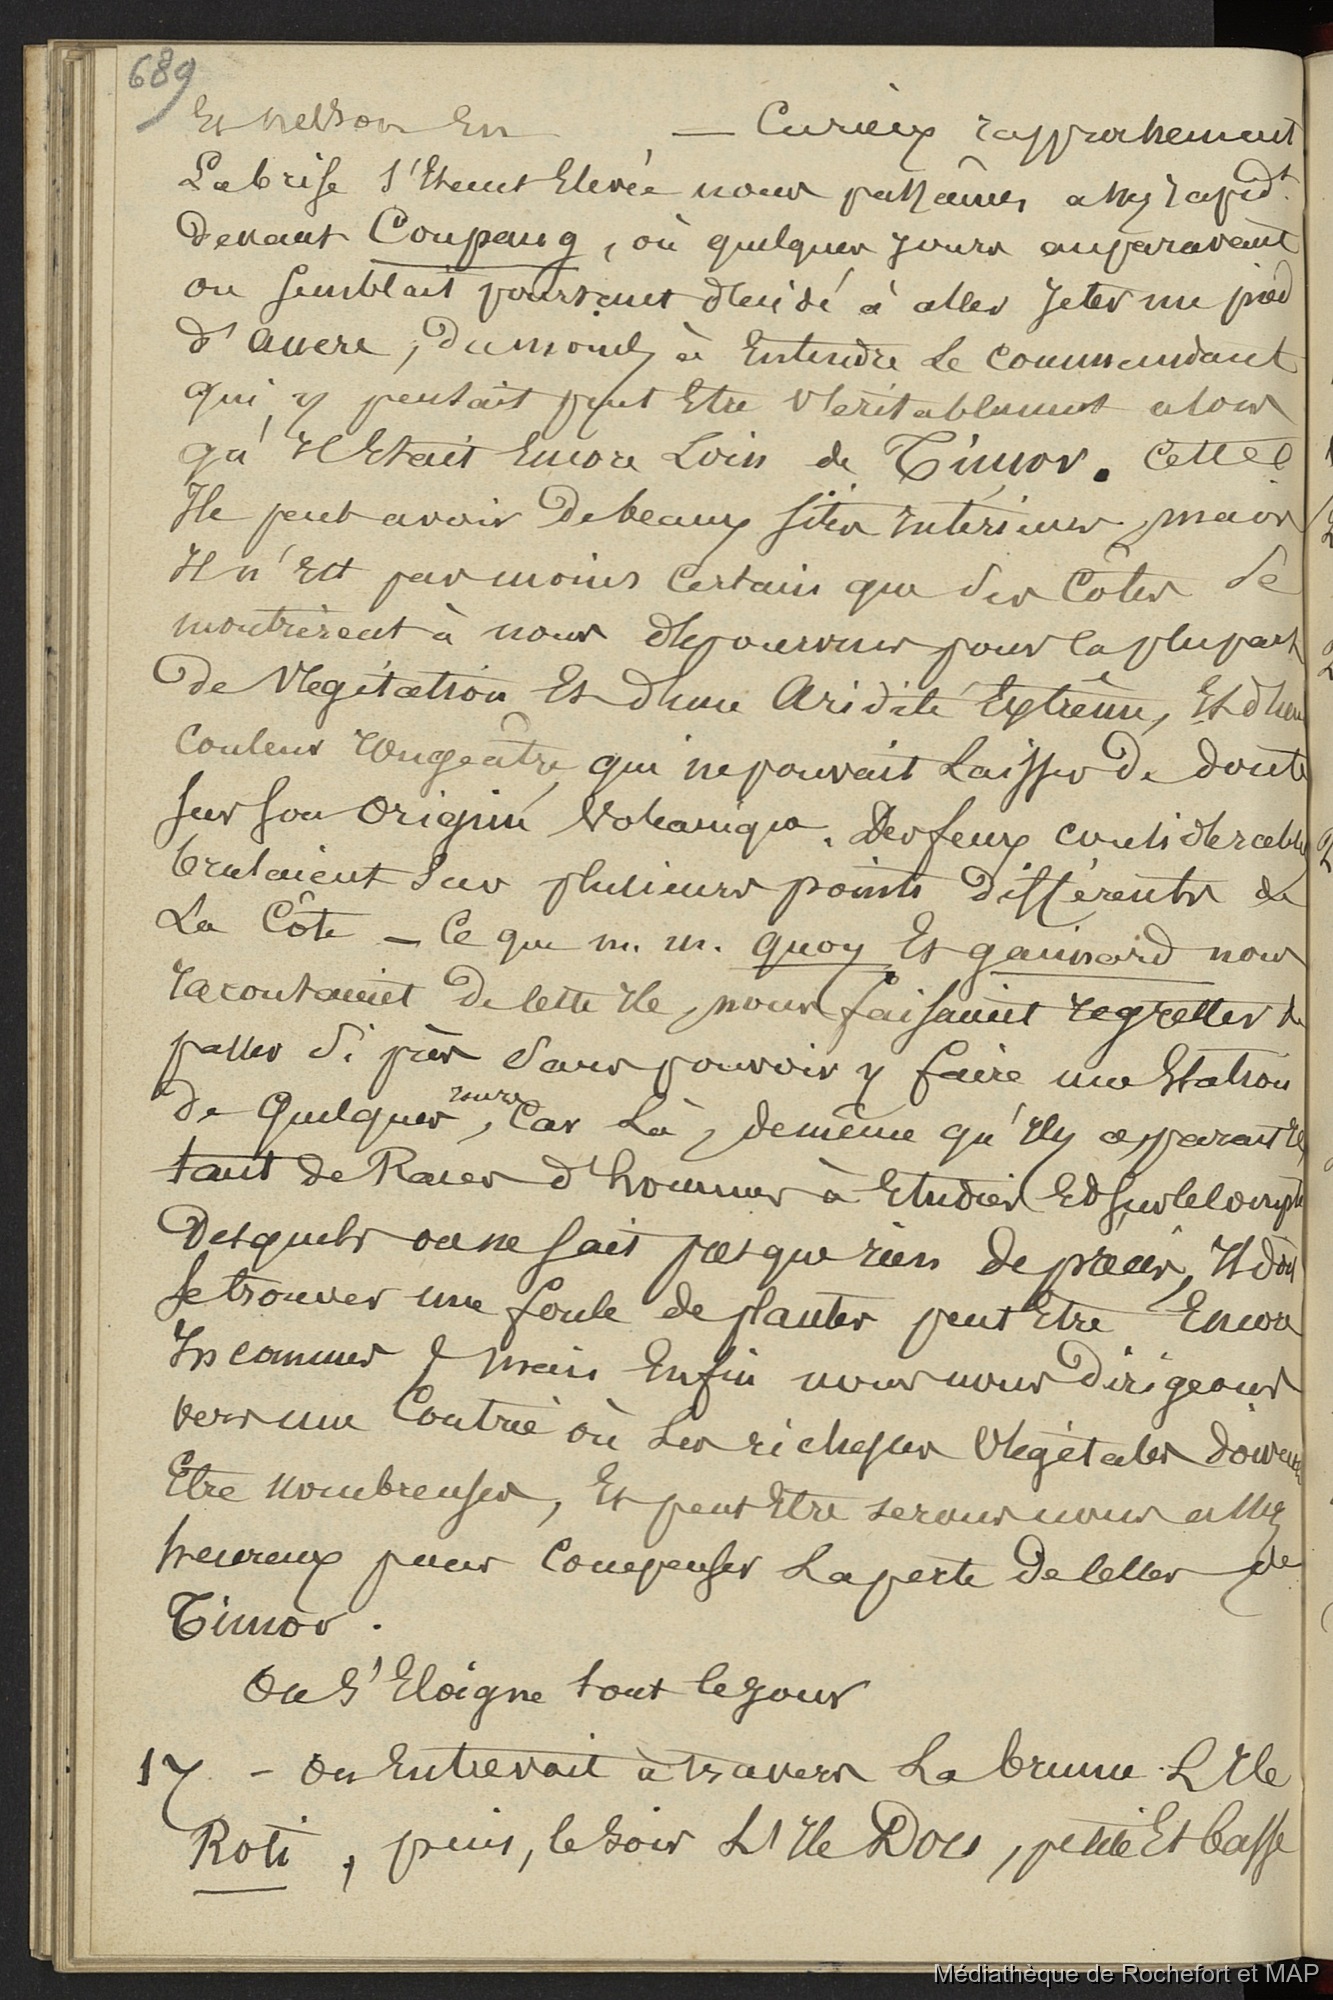 689
Et nelson En — Curieux rapprochement
La brise s'Etant Elevée nous passâmes assez rapidt.
devant Coupang, où quelques jours auparavant
on semblait pourtant décidé à aller Jeter un pied
d'ancre, du moins à Entendre Le commandant
qui y pensait peut Etre véritablement alors
qu'Il Etait Encore Loin de Timor. Cette
Ile peut avoir de beaux sites Intérieurs, mais
Il n'Est pas moins certain que ses Côtes se
montrèrent à nous dépourvues pour la plupart
de végétation Et d'une Aridité Extrême, Et d'une
couleur rougeâtre qui ne pouvait Laisser de doute
sur son origine Volcanique. Des feux considérables
brulaient sur plusieurs points différents de
La Côte — Ce que m. m. quoy Et gaimard nous
racontaient de cette Ile, nous faisaient regretter de
passer si près sans pouvoir y faire une Station
de quelques jours, Car Là, de même qu'Il y apparait
tant de Races d'hommes à Etudier Et sur le compte
desquels on ne sait presque rien de précis, Il doit
se trouver une foule de plantes peut Etre Encore
Inconnues, mais Enfin nous nous dirigeons
vers une Contrée où Les richesses végétales doivent
Etre nombreuses, Et peut Etre serons nous assez
heureux pour compenser La perte de celles de
Timor.
On s'Eloigne tout le jour
17 - On Entrevoit à travers La brume L'Ile
Roti, puis, le soir L'Ile Dou, petite Et basse
Médiathèque de Rochefort et MAP